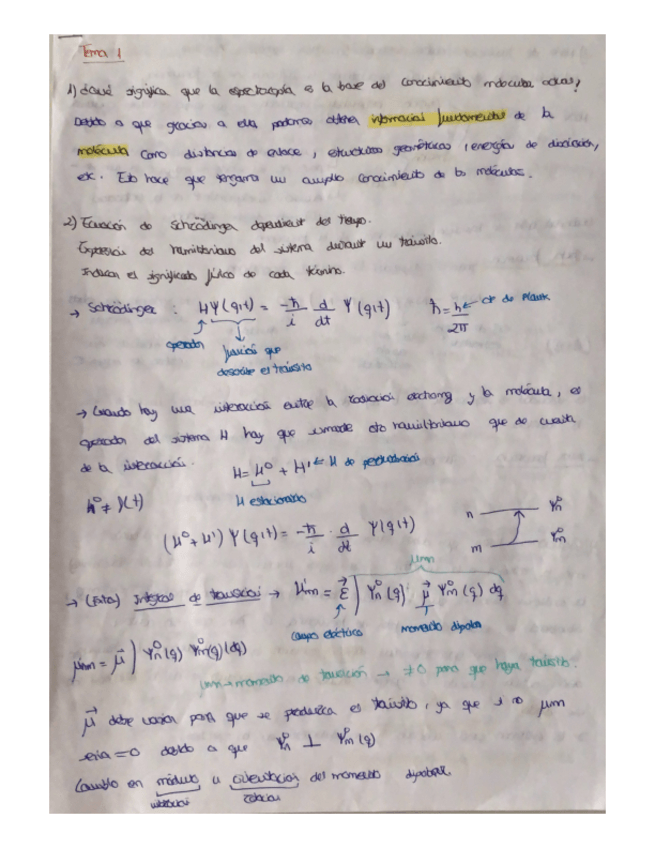 Tema 1
1) ¿Qué significa que la espectroscopía es la base del conocimiento molecular actual?
Debido a que gracias a ella podemos obtener información fundamental de la
molécula como distancias de enlace, estructuras geométricas, energías de disociación,
etc. Esto hace que tengamos un amplio conocimiento de las moléculas.
2) Ecuación de Schrödinger dependiente del tiempo.
Expresión del hamiltoniano del sistema durante un tránsito.
Indican el significado físico de cada término.
→ Schrödinger : HΨ(q,t) = -ħ/i d/dt Ψ(q,t) ħ = h/2π ← cte de Plank
operador función que
describe el tránsito
→ Cuando hay una interacción entre la radiación electromg y la molécula, el
operador del sistema H hay que sumarle otro hamiltoniano que de cuenta
de la interacción. H = H⁰ + H' ← H de perturbación
H⁰ ≠ f(t) H estacionario
(H⁰ + H') Ψ(q,t) = -ħ/i · d/dt Ψ(q,t) n Ψn⁰
m Ψm⁰
μnm
→ (Foto) Integral de transición → H'nm = ε⃗ ∫ Ψn⁰(q) · μ⃗ Ψm⁰(q) dq
campo eléctrico momento dipolar
μnm = μ⃗ ∫ Ψn⁰(q) Ψm⁰(q) (dq)
μnm → momento de transición → ≠0 para que haya tránsito.
μ⃗ debe variar para que se produzca el tránsito, ya que si no μnm
sería = 0 debido a que Ψn⁰ ⊥ Ψm⁰(q)
Cambio en módulo u orientación del momento dipolar.
vibración rotación